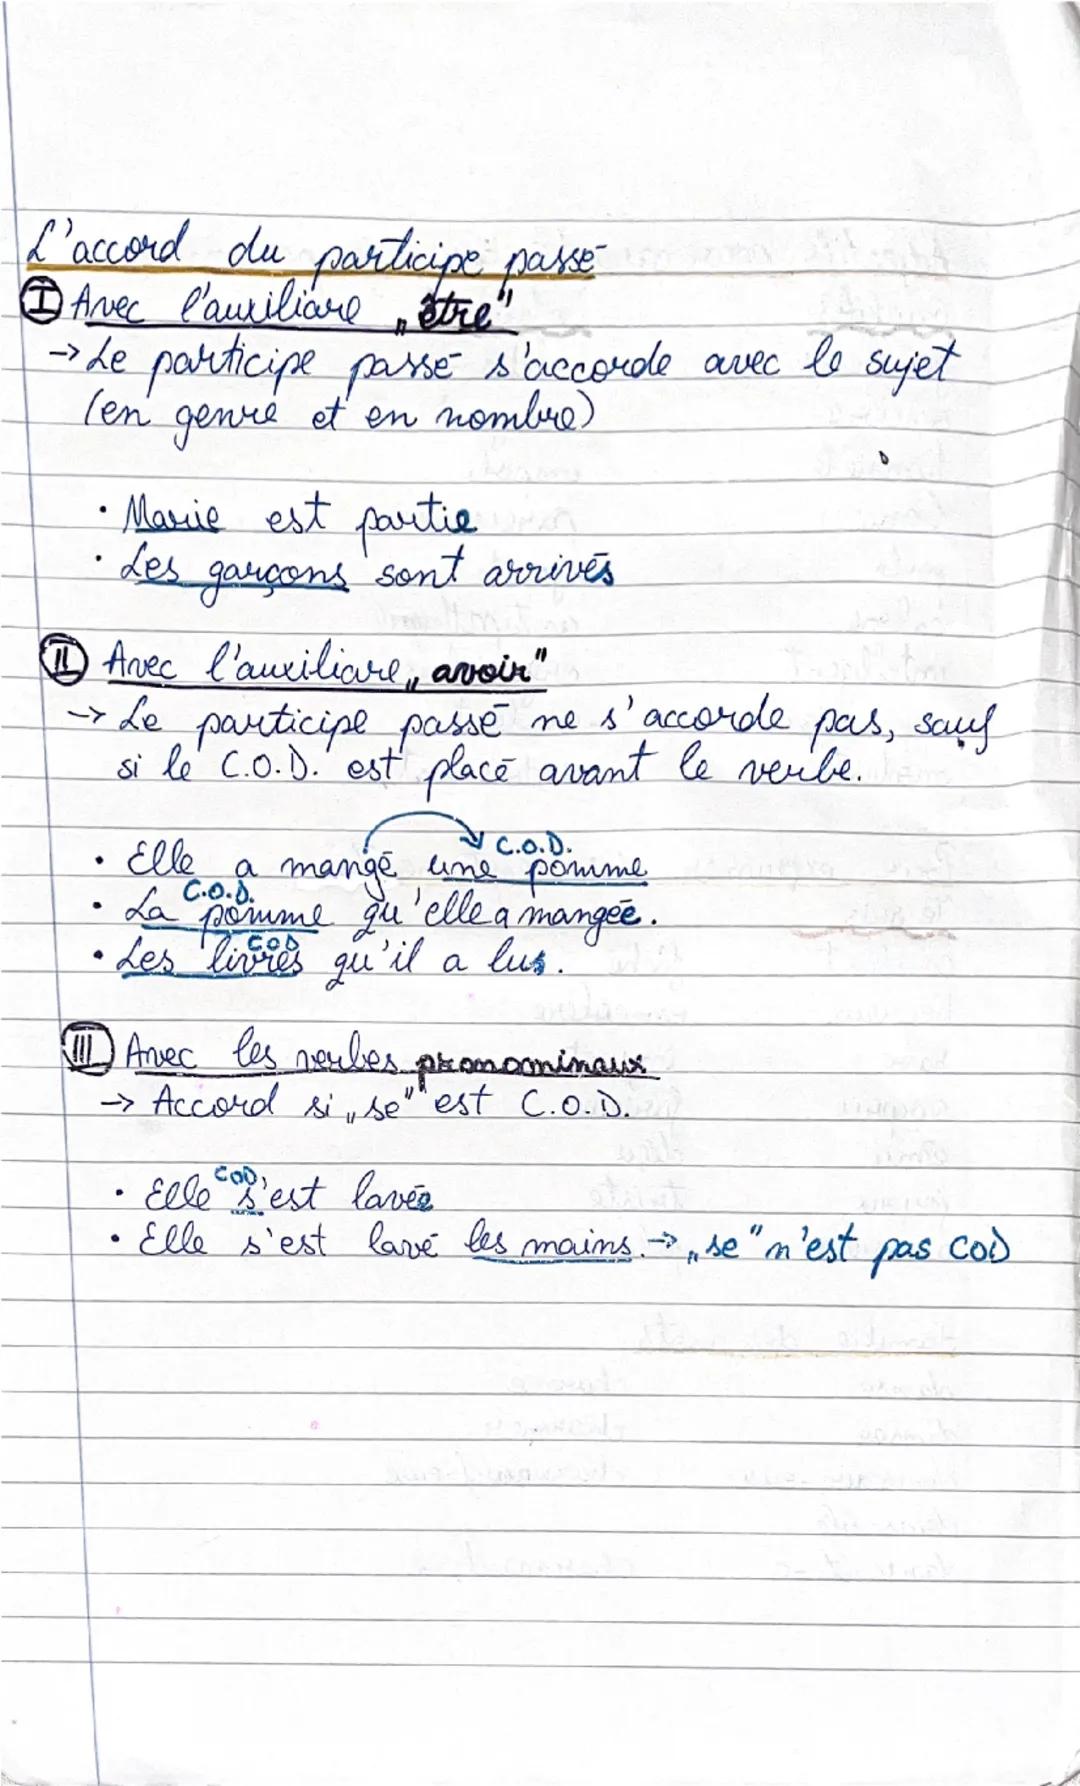 L'accord du participe passé
I Avec l'auxiliare „être"
→ Le participe passé s'accorde avec le sujet
(en genre et en nombre)
• Marie est partie
• Les garçons sont arrivés
II Avec l'auxiliare „avoir"
→ Le participe passé ne s'accorde pas, sauf
si le C.O.D. est placé avant le verbe.
C.O.D.
• Elle a mangé une pomme
C.O.D.
• La pomme qu'elle a mangée.
COD
• Les livres qu'il a lus.
III Avec les verbes pronominaux
→ Accord si „se" est C.O.D.
COD
• Elle s'est lavée
• Elle s'est lavé les mains. → „se" n'est pas COD